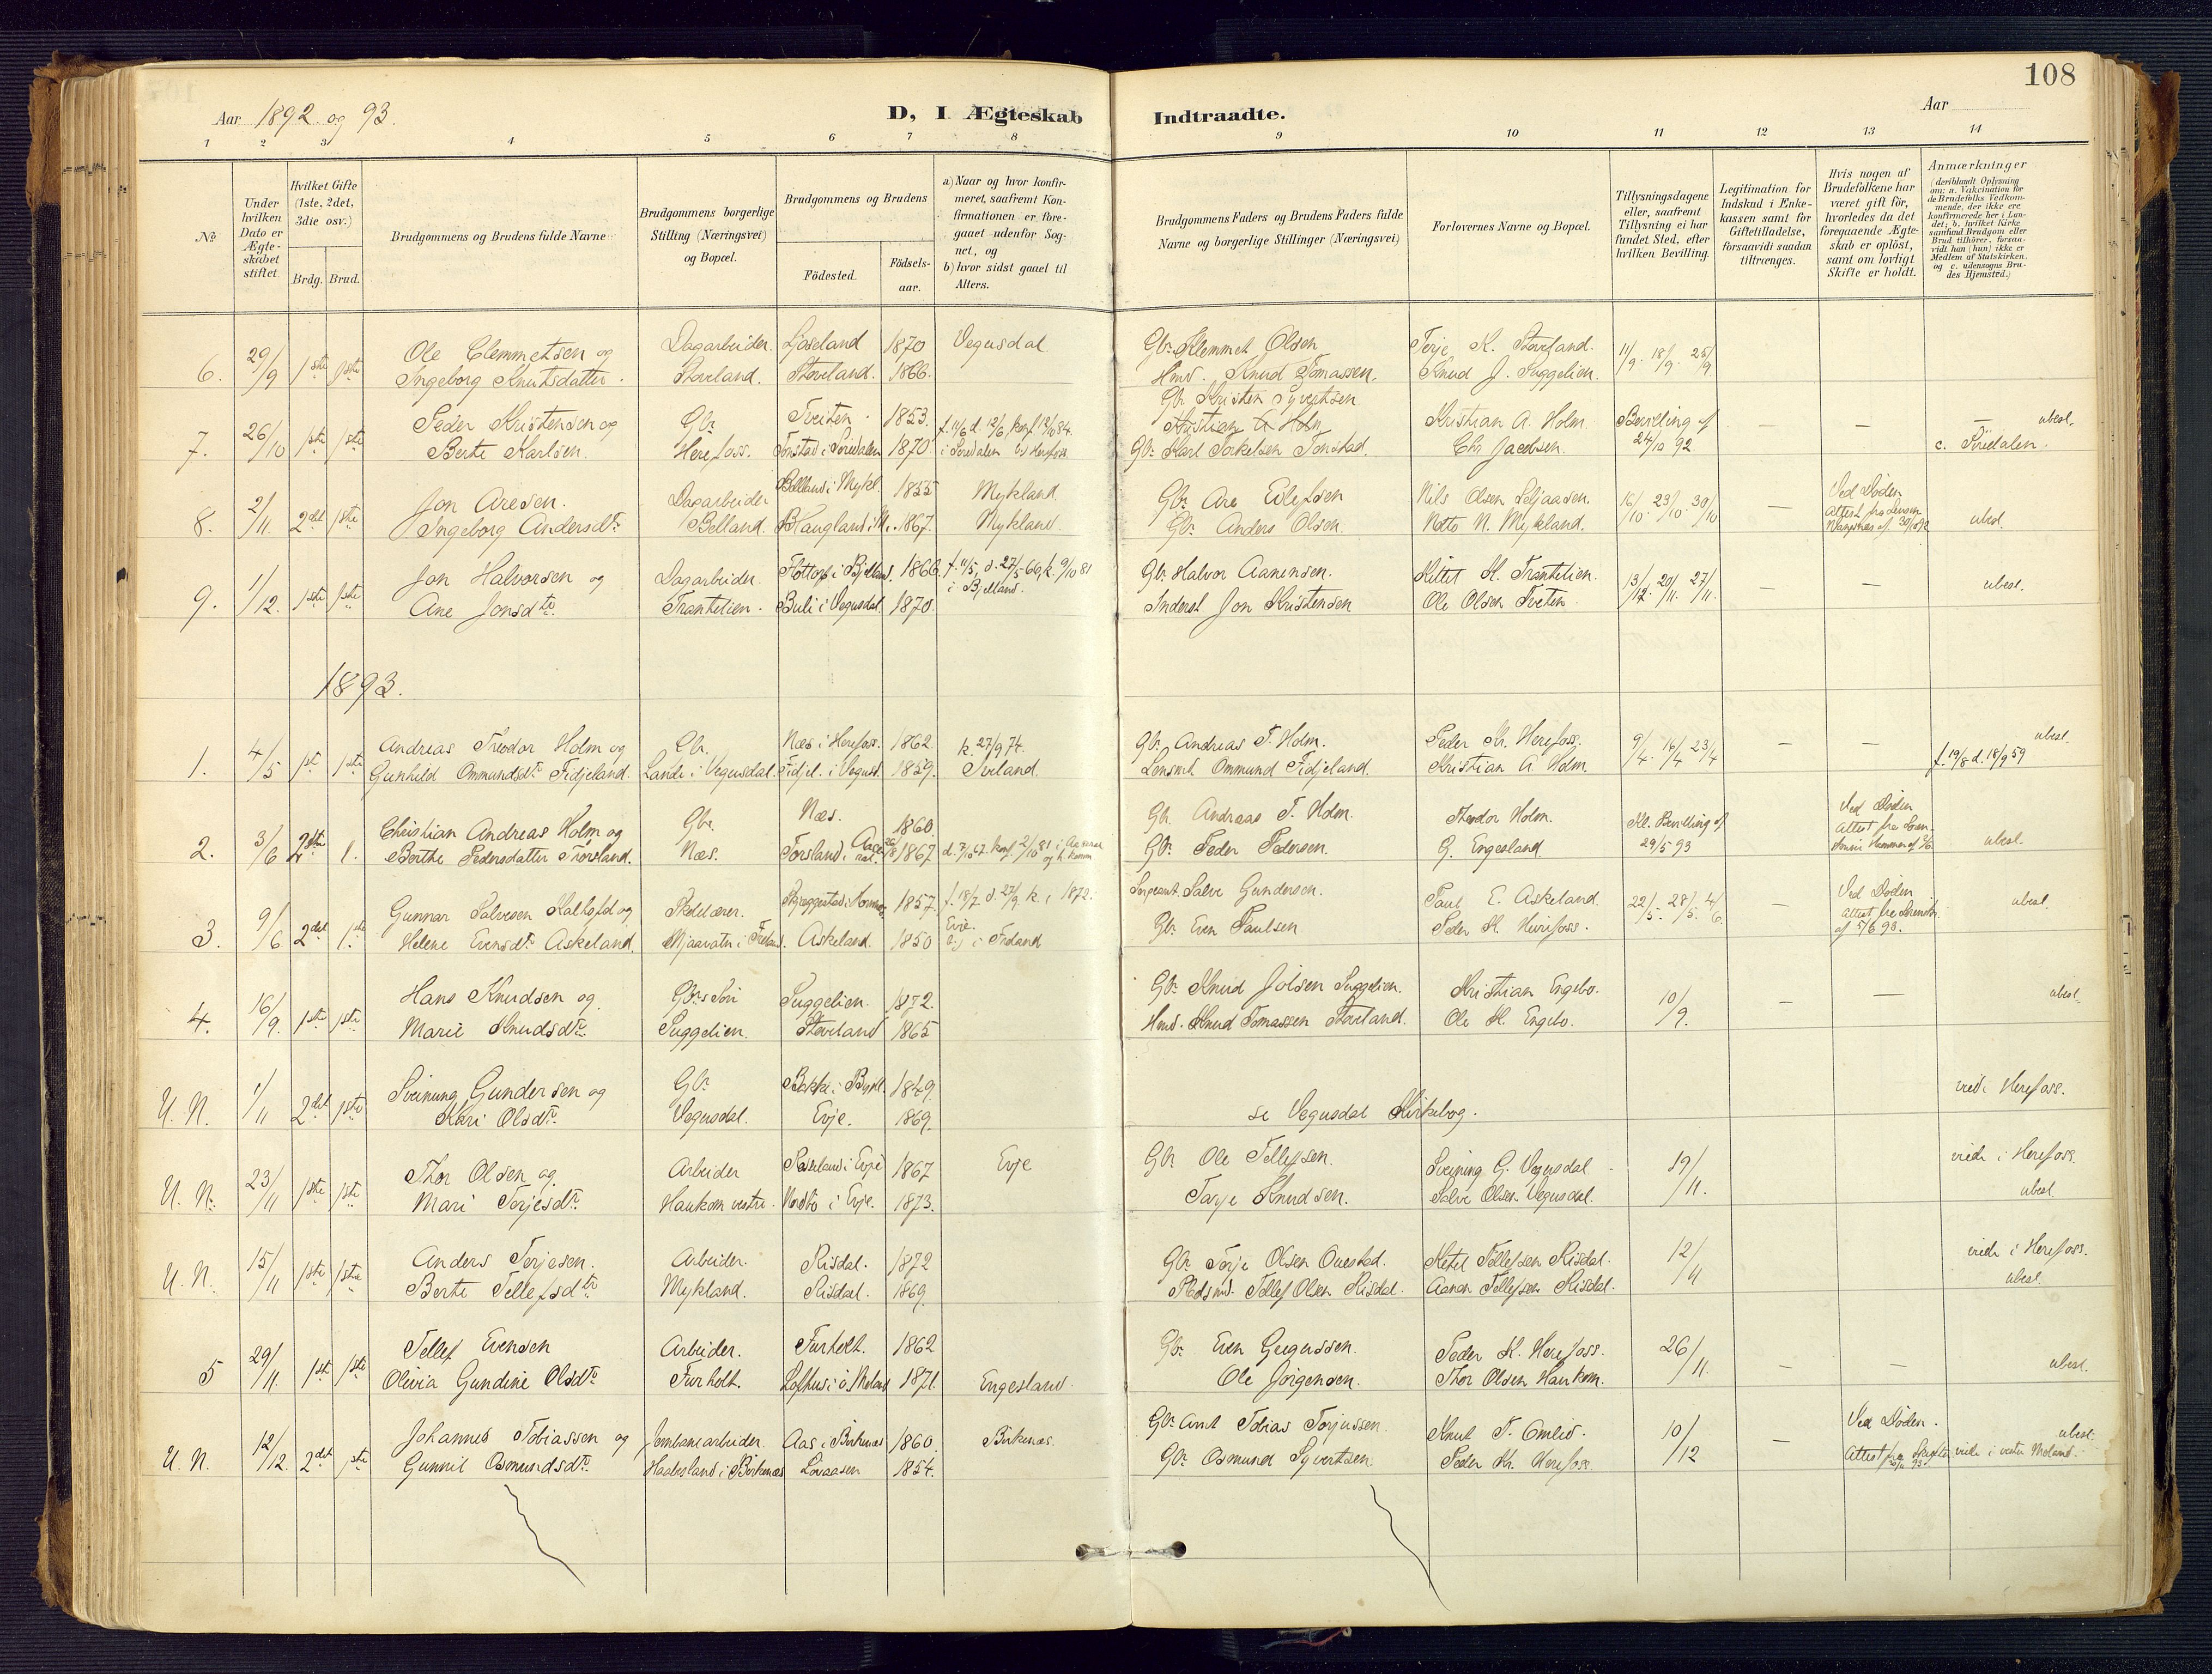 108
Aar 1892 og 93.
D, I Ægteskab Indtraadte.
Aar
1 2 3 4 5 6 7 8 9 10 11 12 13 14
No
Under hvilken Dato er Ægteskabet stiftet
Hvilket Gifte (1ste, 2det, 3die osv.)
Brdg. Brud.
Brudgommens og Brudens fulde Navne
Brudgommens borgerlige Stilling (Næringsvei) og Bopæl.
Brudgommens og Brudens
Födested.
Födsels-aar.
a) Naar og hvor konfirmeret, saafremt Konfirmationen er foregaaet udenfor Sognet, og
b) hvor sidst gaaet til Alters.
Brudgommens Faders og Brudens Faders fulde Navne og borgerlige Stillinger (Næringsvei)
Forlovernes Navne og Bopæl.
Tillysningsdagene eller, saafremt Tillysning ei har fundet Sted, efter hvilken Bevilling.
Legitimation for Indskud i Enkekassen samt for Giftetilladelse, forsaavidt saadan tiltrænges.
Hvis nogen af Brudefolkene har været gift för, hvorledes da det foregaaende Ægteskab er oplöst, samt om lovligt Skifte er holdt.
Anmærkninger
(deriblandt Oplysning om: a. Vakcination for de Brudefolks Vedkommende, der ikke ere konfirmerede her i Landet; b. hvilket Kirkesamfund Brudgom eller Brud tilhörer, forsaavidt han (hun) ikke er Medlem af Statskirken, og c. udensogns Brudes Hjemsted.)
6. 29/9 1ste 1ste Ole Clemmetsen og Dagarbeider. Ljoseland 1870 Vegusdal Gbr. Klemmet Olsen Terje K. Storeland. 11/9. 18/9. 25/9
Ingeborg Knutsdatter. Storeland. Storeland. 1866. Hmd. Knud Tomassen. Knud J. Suggelien.
7. 26/10 1ste 1ste Peder Kristensen og Gbr. Tveiten. 1853. f. 11/6 d. 12/6 konf 12/10 84. Gbr Kristen Syvertsen Kristian A. Holm Bevilling af — — — ubesl.
Kristian A Holm
Berte Karlsen. Herefoss. Tonstad i Siredalen 1870. i Siredalen b) Herefoss Gbr. Karl Torkelsen Tonstad. Chr Jacobsen. 24/10 92. c. Siredalen.
8. 2/11. 2det 1ste Jon Aresen. Dagarbeider Belland i Mykl. 1855 Mykland Gbr. Are Eilefsen Nils Olsen Seljaasen. 16/10. 23/10. 30/10 — Ved Døden
Ingeborg Andersdtr. Belland. Haugland i M. 1867. Mykland. Gbr. Anders Olsen. Notto N. Mykland. ubesl.
9. 1/12. 1ste 1ste Jon Halvorsen og Dagarbeider. i Bjelland. 1866. f. 11/5, d. 27/5 66, k. 9/10 81 Gbr. Halvor Aanensen. Kittel H. Trantelien. 13/12. 20/11. 27/11. — — ubesl.
Ane Jonsdtr. Trantelien. Buli i Vegusdal 1870. i Bjelland. Inderst Jon Kristensen Ole Olsen Tveten
1893.
1. 4/5 1ste 1ste Andreas Theodor Holm og Gbr. Næs i Herefoss. 1862. k. 27/9 74. Gbr. Andreas T. Holm. Peder Kr. Herefoss. 9/4. 16/4 23/4 — — ubesl.
Gunhild Ommundsdtr. Fidjeland. Lande i Vegusdal. Fidjel. i Vegusd. 1859. Iveland. Lensm. Ommund Fidjeland. Kristian A. Holm. f. 19/8 d. 18/9 59
2. 3/6 2det 1. Christian Andreas Holm og Gbr. Næs. 1860. Gbr. Andreas T. Holm. Theodor Holm. Kl. Bevilling af Ved Døden
Berthe Pedersdatter Torsland. Næs. Torsland i 1867 Gbr. Peder Pedersen. G. Engesland. 29/5 93 ubesl.
3. 9/6 2det 1ste Gunnar Salvesen Kalhofd og Skolelærer. 1857. f. 18/7. d. 27/9. k. i 1872. Sergeant Salve Gundersen. Paul E. Askeland. 22/5. 28/5. 4/6. — Ved Døden ubesl.
Evje.
Helene Evensdtr. Askeland. Mjaavatn i Froland. Askeland. 1850 b) i Froland Gbr. Even Paulsen Peder K. Herefoss. af 5/6 93.
4. 16/9. 1ste 1ste Hans Knudsen og Gbrs Søn Suggelien. 1872. Gbr. Knud Jolsen Suggelien. Kristian Engebo. 10/9. — — ubesl.
Marie Knudsdtr. Suggelien. Storeland 1865 Hmd. Knud Tomassen Storeland. Ole K. Engebo.
U. N. 1/11 2det 1ste Sveinung Gundersen og Gbr. 1849. viede Herefoss.
Kari Olsdtr. Vegusdal. Evje. 1869. se Vegusdal Kirkebog.
U. N. 23/11 1ste 1ste Thor Olsen og Arbeider i Evje 1867 Evje Gbr. Ole Tellefsen. Sveinung G. Vegusdal 19/11. viede i Herefoss.
Mari Terjesdtr. Haukom vestre. i Evje. 1873. Terje Knudsen. Salve Olsen Vegusdal. ubesl.
U. N. 15/11 1ste 1ste Anders Terjesen. Arbeider. Risdal. 1872 Gbr. Terje Olsen Ovestad. Ketel Tellefsen Risdal. 12/11 viede i Herefoss.
Berte Tellefsdtr. Mykland. Risdal. 1869. Pladsmd. Tellef Olsen Risdal. Aanon Tellefsen Risdal. ubesl.
5 29/11. 1ste 1ste Tellef Evensen Arbeider. Furholt. 1862 Gbr. Even Gregussen. Peder K. Herefoss. 26/11 — — ubesl.
Olivia Gundine Olsdtr. Furholt. Lofthus i ö. Moland 1871. Engesland. Ole Jörgensen. Thor Olsen Haukom.
U. N. 12/12. 2det 1ste Johannes Tobiassen og Jernbanearbeider. Aas i Birkenæs 1860. Birkenæs. Gbr. Arnt Tobias Terjussen. Knut T. Omlid. 10/12 — Ved Døden. ubesl.
Gunnil Osmundsdtr. Haabesland i Birkenæs Lovaasen 1854. Gbr. Osmund Syvertsen. Peder Kr. Herefoss. Attest fra viede i vestre Moland.